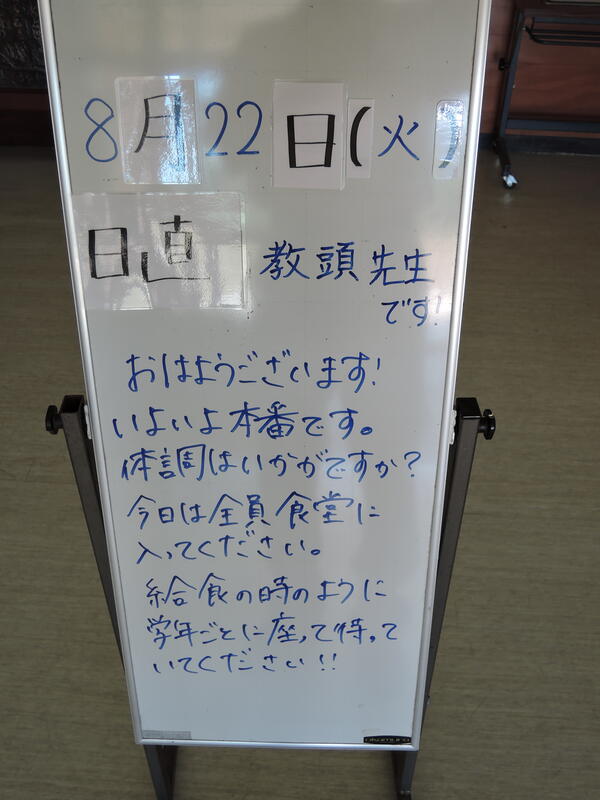 8月22日(火)
日直 教頭先生
です!
おはようございます!
いよいよ本番です。
体調はいかがですか?
今日は全員食堂に
入ってください。
給食の時のように
学年ごとに座って待って
いてください!!